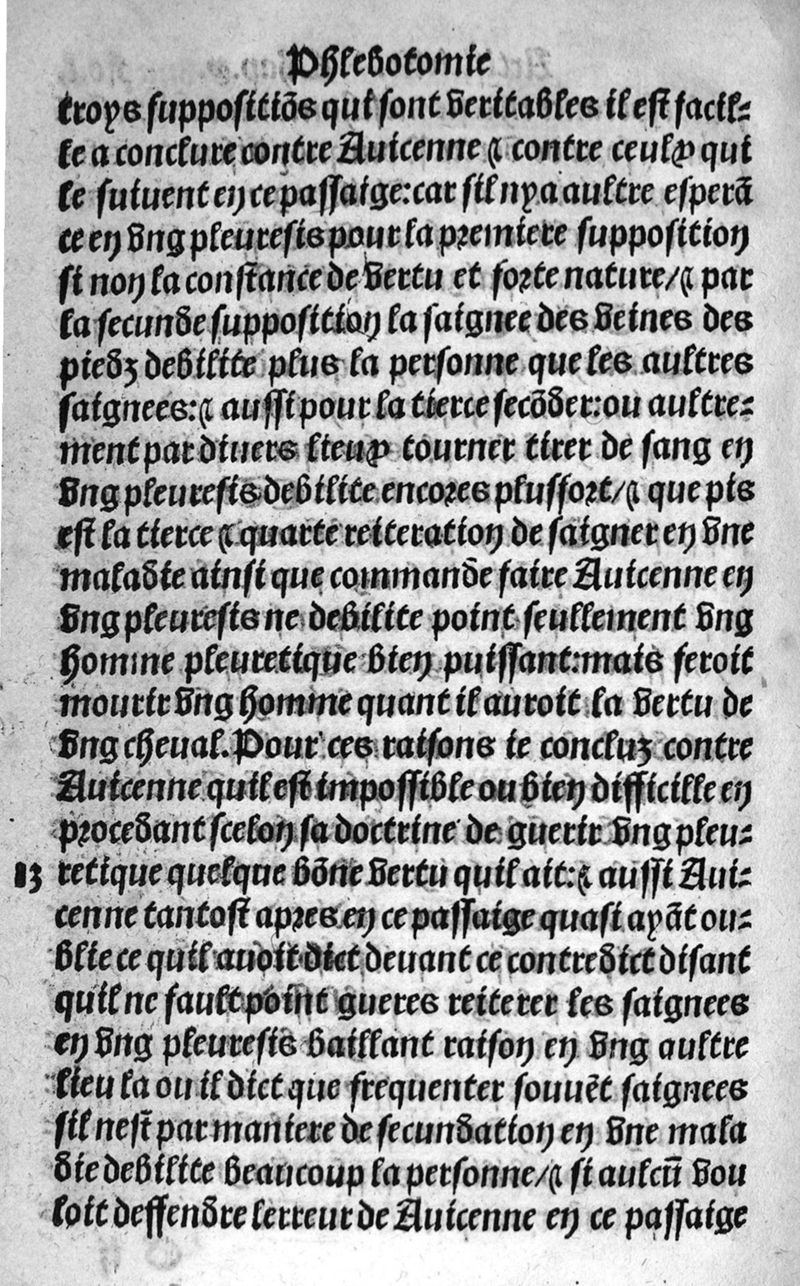 Phlebotomie
troys suppositiõs qui sont veritables il est facil-
le a conclure contre Auicenne & contre ceulx qui
le suiuent en ce passaige: car sil nya aultre esperã
ce en vng pleuresis pour la premiere supposition
si non la constance de vertu et forte nature/& par
la secunde supposition la saignee des veines des
piedz debilite plus la personne que les aultres
saignees: & aussi pour la tierce secõder: ou aultre-
ment par diuers lieux tourner tirer de sang en
vng pleuresis debilite encores plus fort/& que pis
est la tierce & quarte reiteration de saigner en vne
maladie ainsi que commande faire Auicenne en
vng pleuresis ne debilite point seullement vng
homme pleuretique bien puissant: mais feroit
mourir vng homme quant il auroit la vertu de
vng cheual. Pour ces raisons ie concluz contre
Auicenne quil est impossible ou bien difficille en
procedant scelon sa doctrine de guerir vng pleu-
13 retique quelque bõne vertu quil ait: & aussi Aui-
cenne tantost apres en ce passaige quasi ayãt ou-
blie ce quil auoit dict deuant ce contredict disant
quil ne fault point gueres reiterer les saignees
en vng pleuresis baillant raison en vng aultre
lieu la ou il dict que frequenter souuẽt saignees
sil nest par maniere de secundation en vne mala
die debilite beaucoup la personne/& si aulcũ vou
loit deffendre lerreur de Auicenne en ce passaige